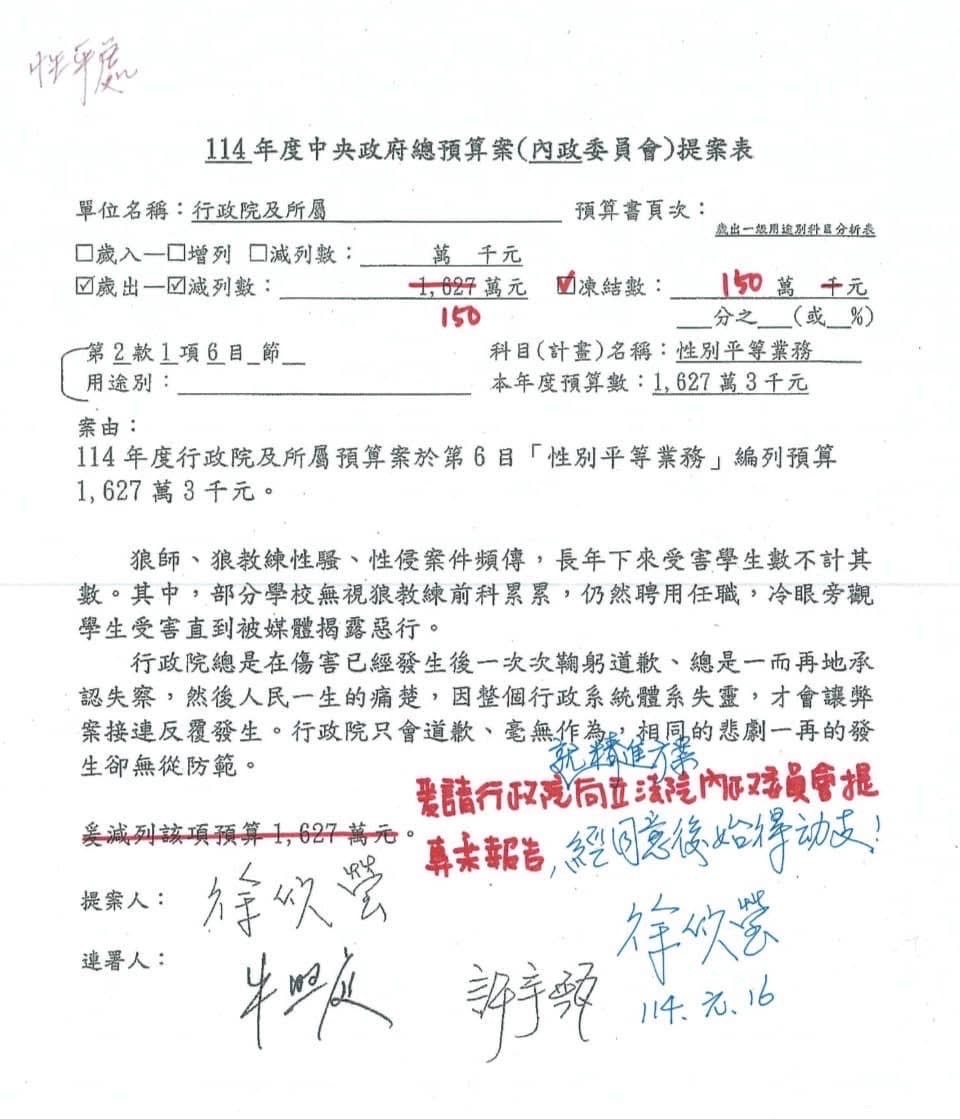 性平處
114年度中央政府總預算案(內政委員會)提案表
單位名稱：行政院及所屬 預算書頁次：
歲出一級用途別科目分析表
□歲入—□增列 □減列數：＿＿萬 千元
☑歲出—☑減列數：1,627萬元 ☑凍結數：150萬 千元
150 ＿分之＿(或＿%)
第2款1項6目_節_ 科目(計畫)名稱：性別平等業務
用途別：＿＿ 本年度預算數：1,627萬3千元
案由：
114年度行政院及所屬預算案於第6目「性別平等業務」編列預算
1,627萬3千元。
狼師、狼教練性騷、性侵案件頻傳，長年下來受害學生數不計其
數。其中，部分學校無視狼教練前科累累，仍然聘用任職，冷眼旁觀
學生受害直到被媒體揭露惡行。
行政院總是在傷害已經發生後一次次鞠躬道歉、總是一而再地承
認失察，然後人民一生的痛楚，因整個行政系統體系失靈，才會讓弊
案接連反覆發生。行政院只會道歉、毫無作為，相同的悲劇一再的發
生卻無從防範。
就精進方案
爰請行政院向立法院內政委員會提
爰減列該項預算1,627萬元。
專案報告，經同意後始得动支！
提案人：徐欣瑩
徐欣瑩
連署人：牛煦庭 許宇甄
114.元.16